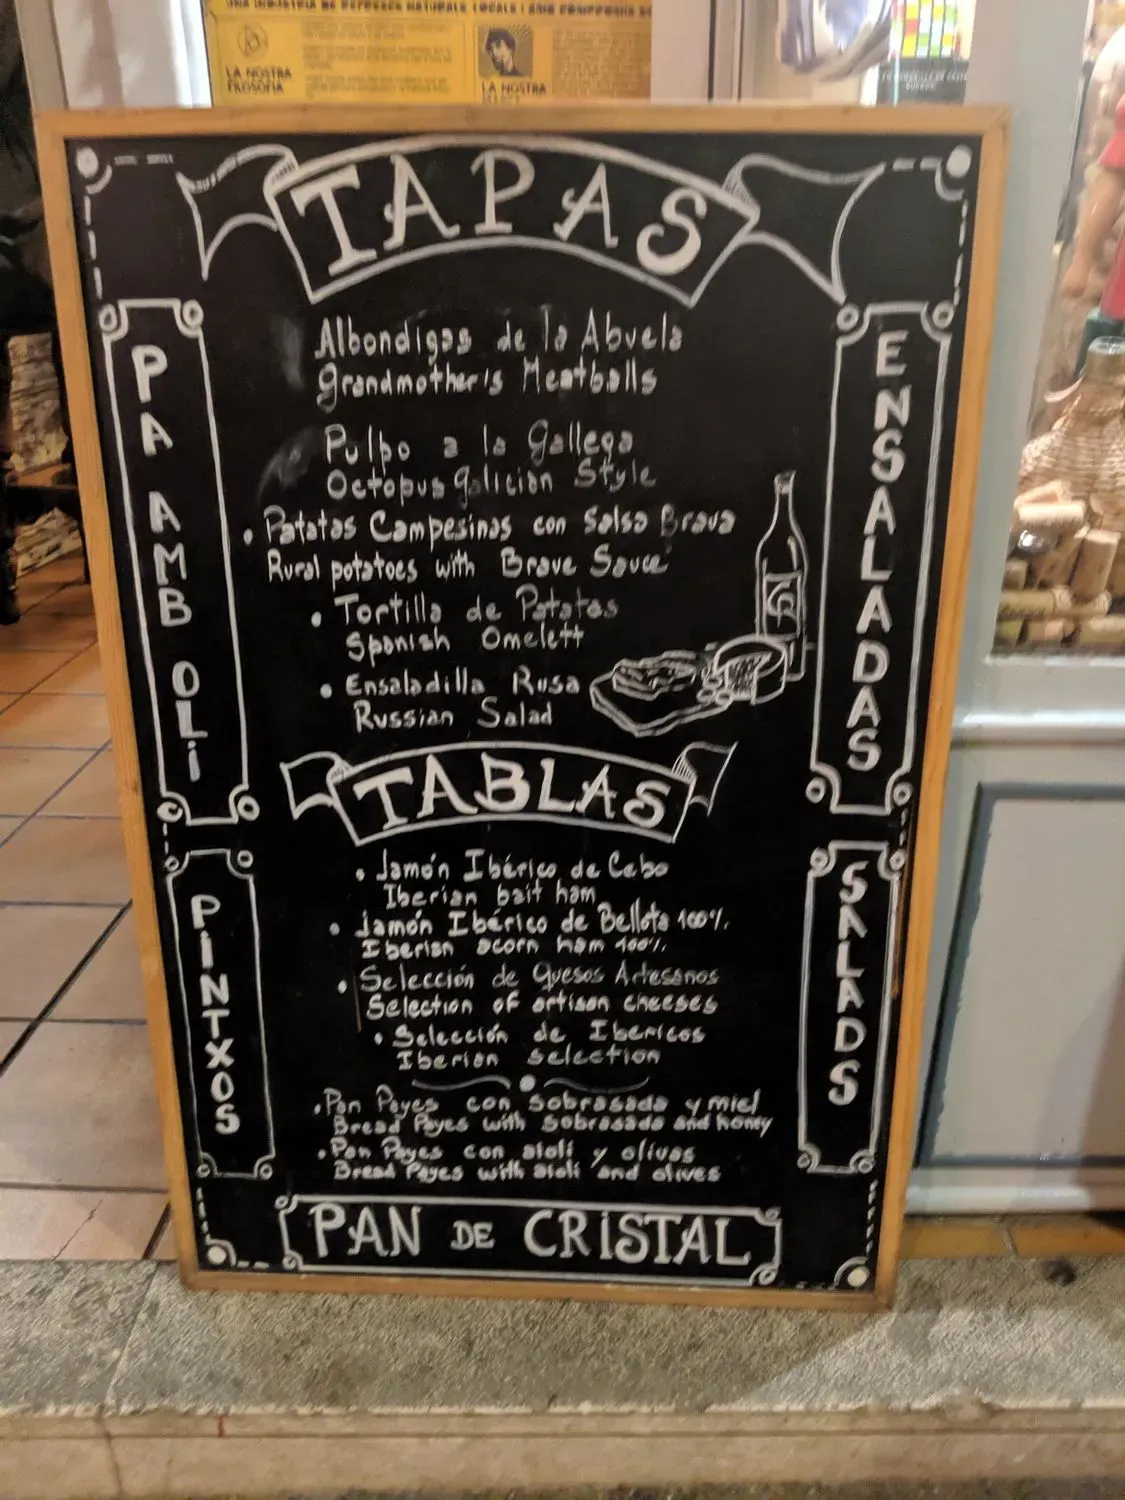 UNA INDÚSTRIA DE REFRESCS NATURALS LOCALS I AMB COMPROMIS
LA NOSTRA
FILOSOFIA
LA NOSTRA
TAPAS
Albondigas de la Abuela
Grandmother's Meatballs
Pulpo a la Gallega
Octopus galician Style
• Patatas Campesinas con Salsa Brava
Rural potatoes with Brave Sauce
• Tortilla de Patatas
Spanish Omelett
• Ensaladilla Rusa
Russian Salad
TABLAS
• Jamón Ibérico de Cebo
Iberian bait ham
• Jamón Ibérico de Bellota 100%.
Iberian acorn ham 100%.
• Selección de Quesos Artesanos
Selection of artisan cheeses
• Selección de Ibericos
Iberian selection
• Pan Payes con sobrasada y miel
Bread Payes with sobrasada and honey
• Pan Payes con aioli y olivas
Bread Payes with aioli and olives
PAN DE CRISTAL
PA AMB OLI
PINTXOS
ENSALADAS
SALADS